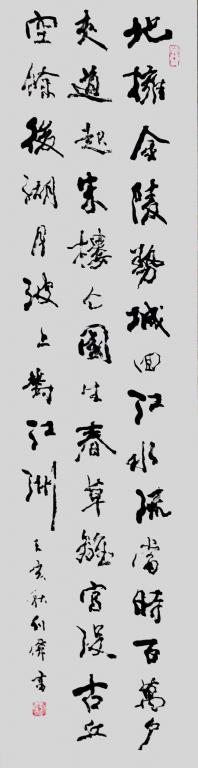 地擁金陵勢城回江水流當時百萬戶
夾道起朱樓亡國生春草離宮沒古丘
空餘後湖月波上對江洲
亥秋利偉書